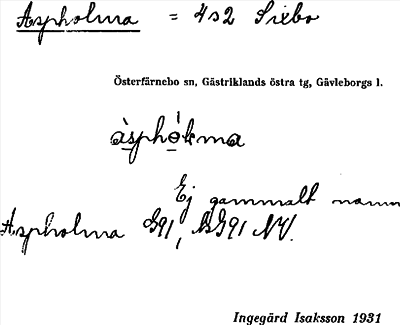 Aspholma = 4:2 Sixbo
Österfärnebo sn, Gästriklands östra tg, Gävleborgs l.
Ej gammalt namn
Aspholma G91, NV.
Ingegärd Isaksson 1931